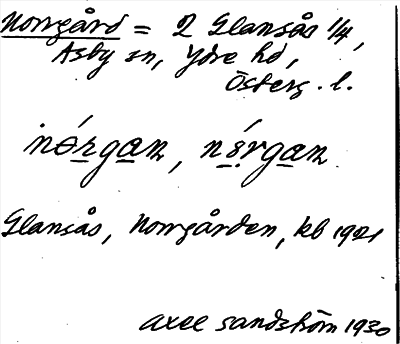 Norrgård = 2 Glansås 1/4,
Asby sn, Ydre hd,
Österg. l.
nórgan, nórgan
Glansås, Norrgården, kb 1921
Axel Sandström 1930